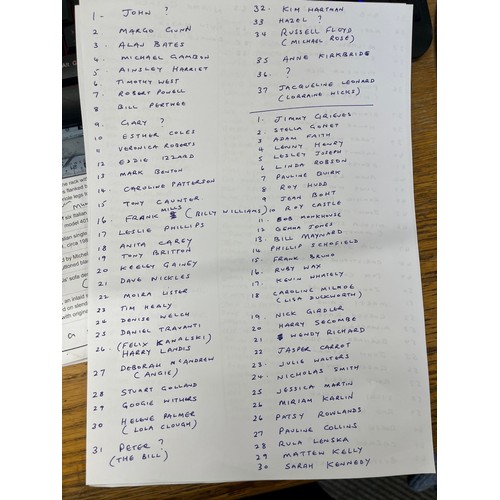 1 - JOHN ?
2 MARGO GUNN
3 ALAN BATES
4 MICHAEL GAMBON
5 AINSLEY HARRIET
6 TIMOTHY WEST
7 ROBERT POWELL
8 BILL PERTWEE
9. GARY ?
10 ESTHER COLES
11 VERONICA ROBERTS
12 EDDIE IZZARD
13 MARK BENTON
14 CAROLINE PATTERSON
15 TONY CAUNTER
16. FRANK MILLS (BILLY WILLIAMS)
17 LESLIE PHILLIPS
18 ANITA CAREY
19 TONY BRITTON
20 KEELEY GAINEY
21 DAVE NICKLES
22 MOIRA LISTER
23 TIM HEALY
24 DENISE WELCH
25 DANIEL TRAVANTI
26 (FELIX KANALSKI)
HARRY LANDIS
27 DEBORAH McANDREW
(ANGIE)
28 STUART GOLLAND
29 GOOGIE WITHERS
30 HELENE PALMER
(LOLA CLOUGH)
31 PETER ?
(THE BILL)
32. KIM HARTMAN
33 HAZEL ?
34 RUSSELL FLOYD
(MICHAEL ROSE)
35 ANNE KIRKBRIDE
36. ?
37 JACQUELINE LEONARD
(LORRAINE HICKS)
1. JIMMY GRIEVES
2. STELLA GONET
3 ADAM FAITH
4 LENNY HENRY
5 LESLEY JOSEPH
6 LINDA ROBSON
7 PAULINE QUIRK
8 ROY HUDD
9 JEAN BOHT
10 ROY CASTLE
11. BOB MONKHOUSE
12 GEMMA JONES
13. BILL MAYNARD
14 PHILLIP SCHOFIELD
15. FRANK BRUNO
16. RUBY WAX
17. KEVIN WHATELY
18 CAROLINE MILMOE
(LISA DUCKWORTH)
19. NICK GIRDLER
20 HARRY SECOMBE
21 WENDY RICHARD
22 JASPER CARROT
23. JULIE WALTERS
24. NICHOLAS SMITH
25 JESSICA MARTIN
26 MIRIAM KARLIN
26 PATSY ROWLANDS
27 PAULINE COLLINS
28 RULA LENSKA
29 MATTEN KELLY
30 SARAH KENNEDY